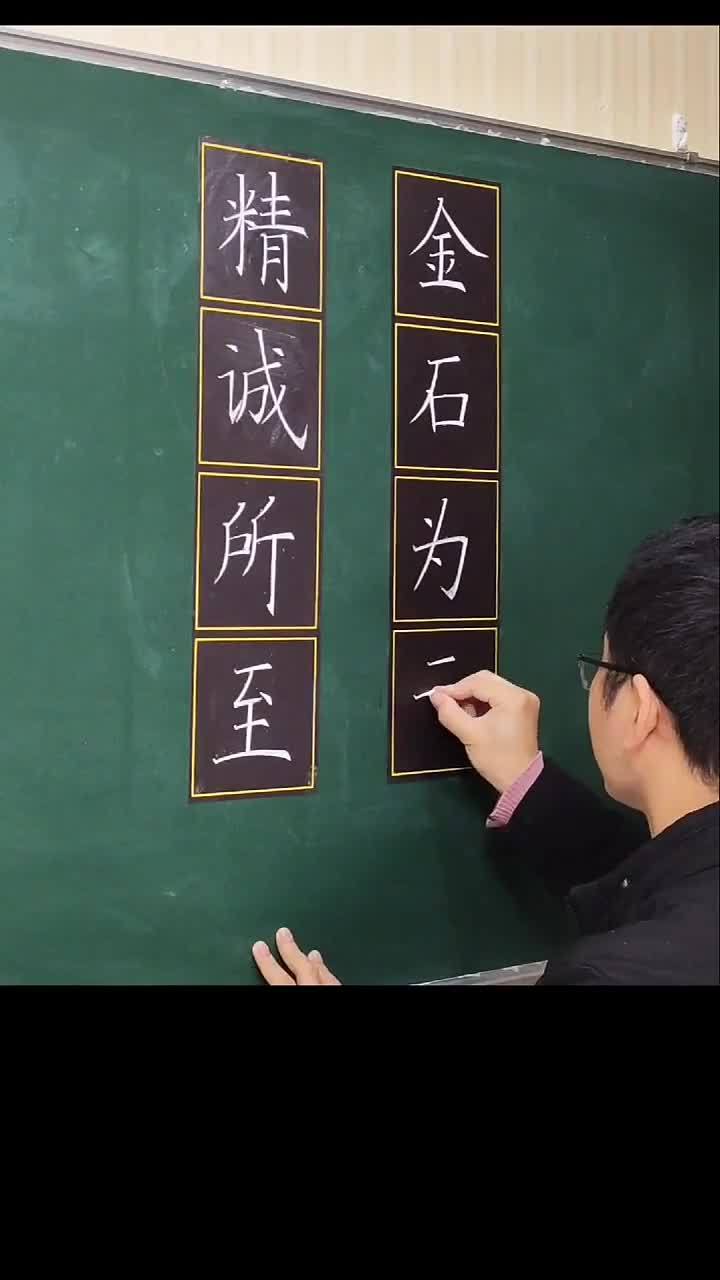 精诚所至
金石为